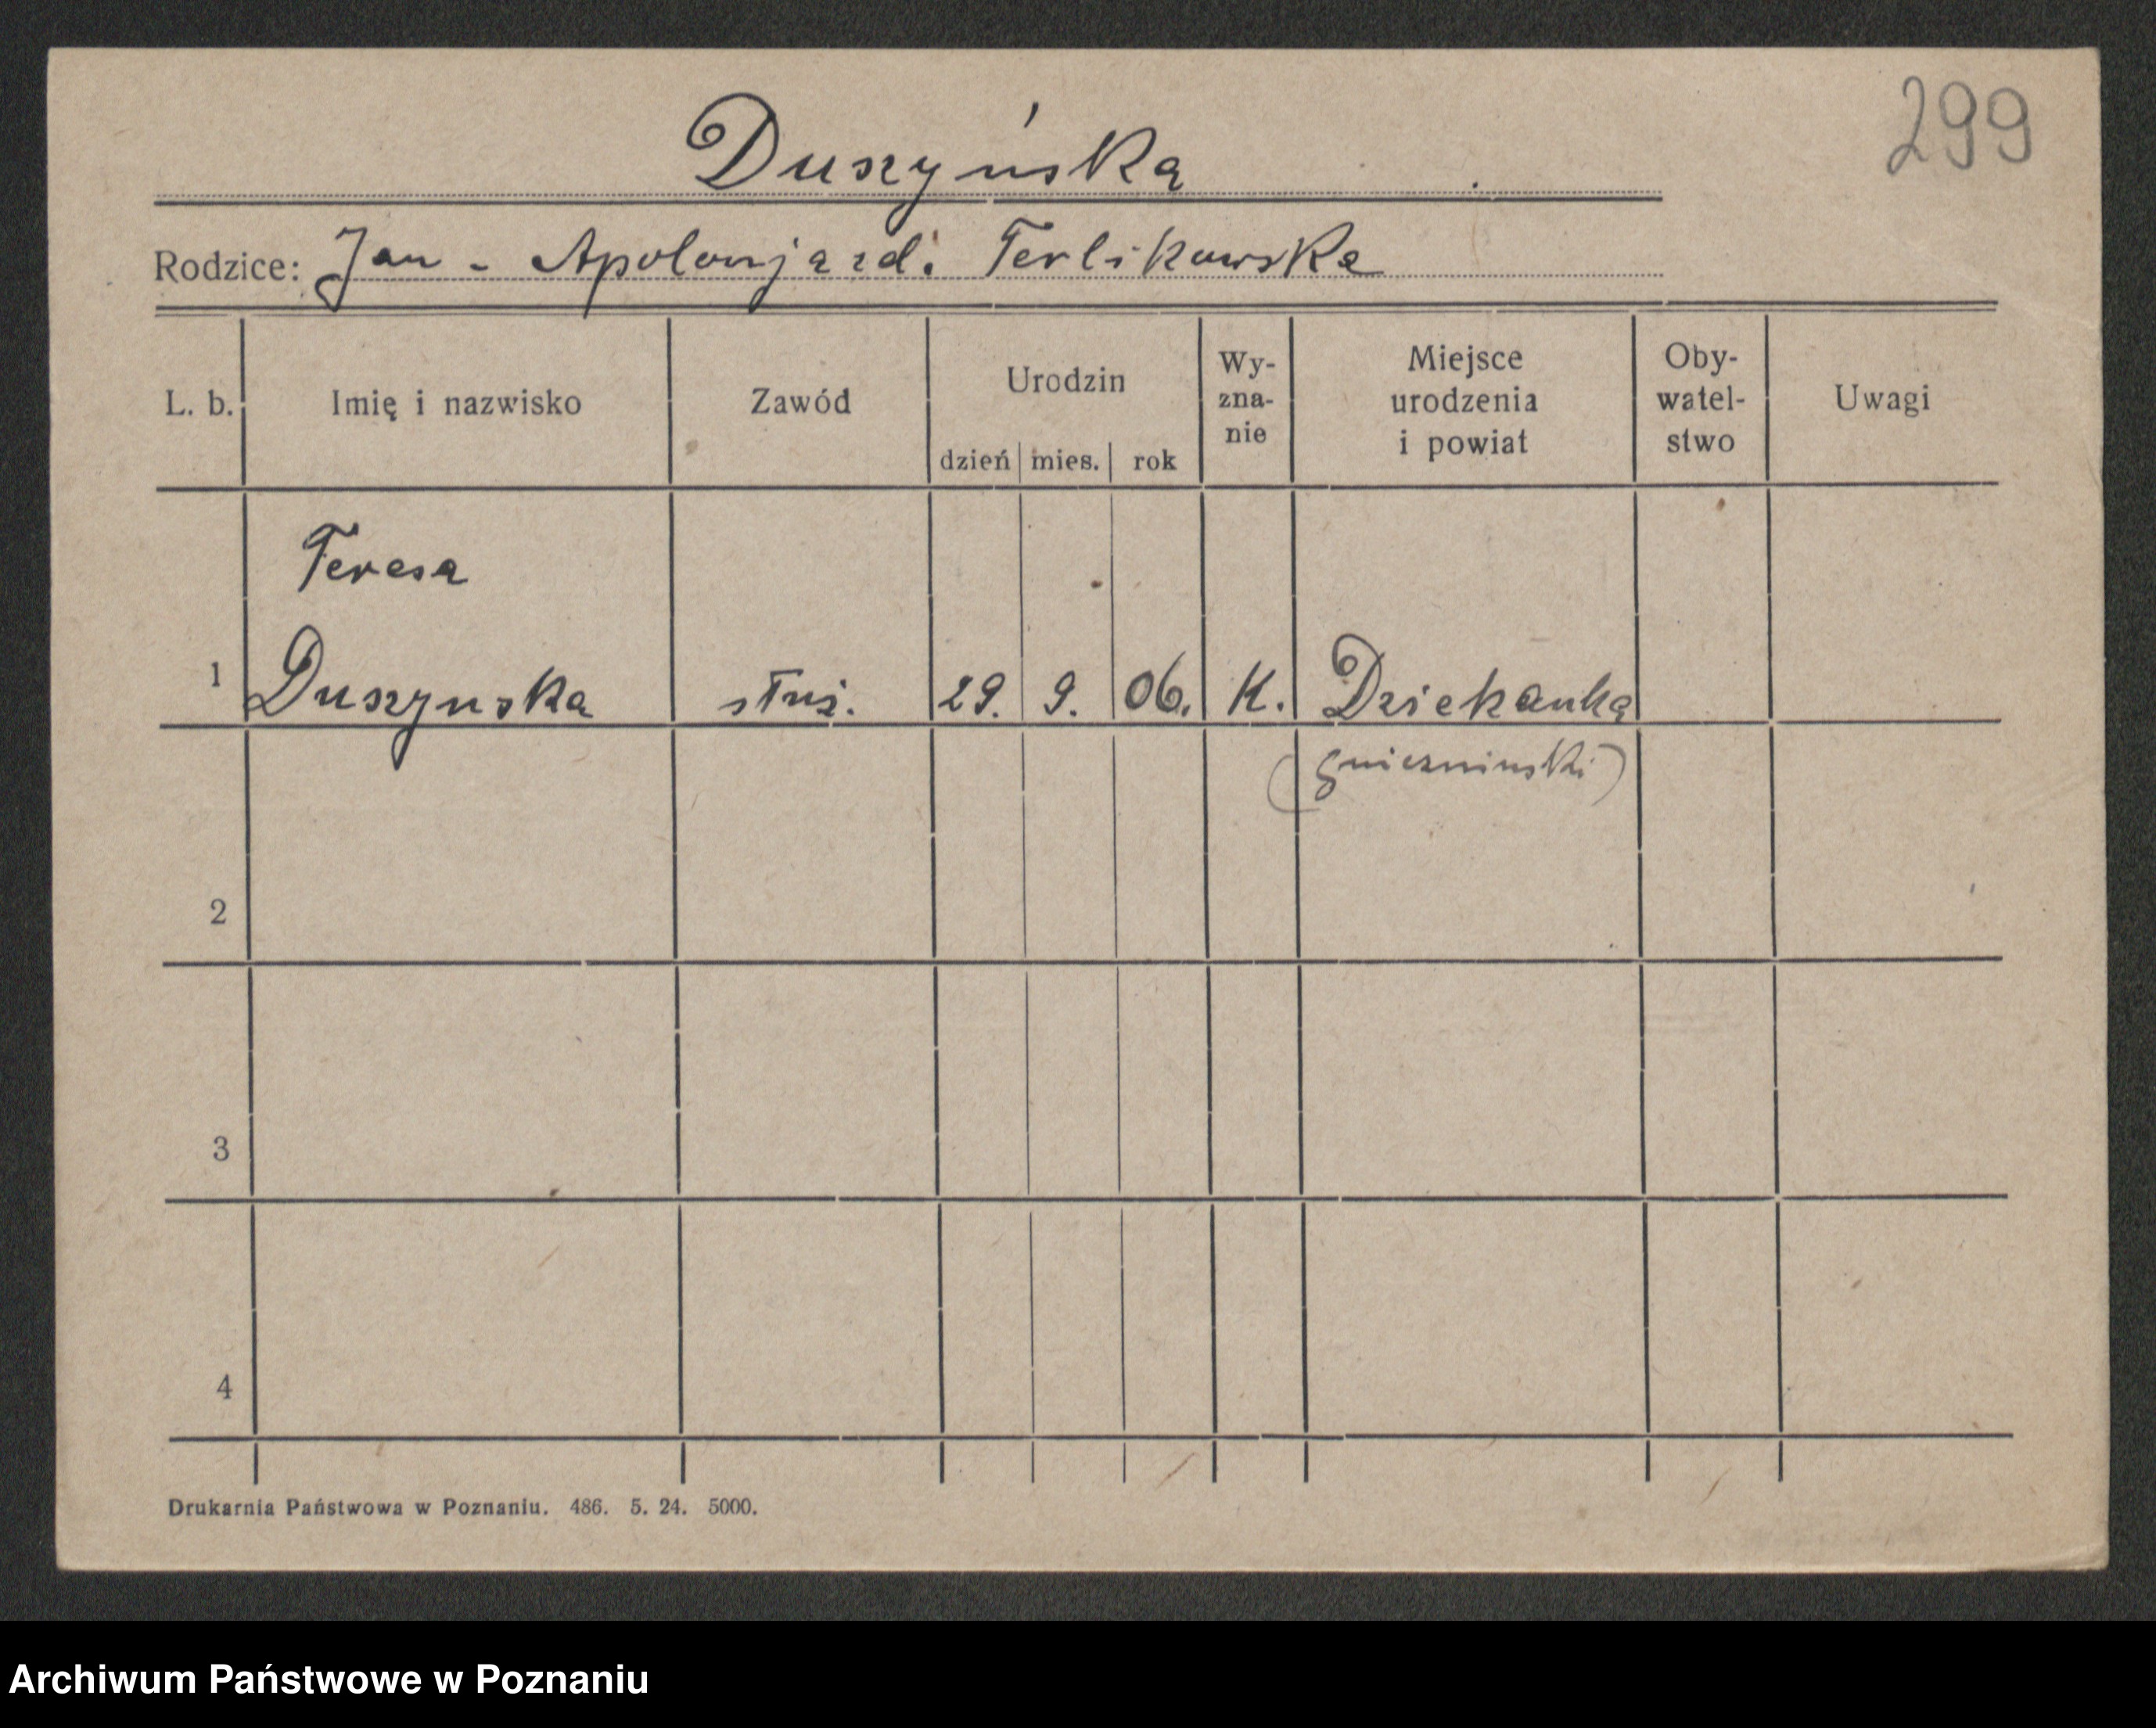 299
Duszyńska
Rodzice: Jan - Apolonja zd. Terlikowska
L. b. Imię i nazwisko Zawód Urodzin dzień mies. rok Wy-zna-nie Miejsce urodzenia i powiat Oby-watel-stwo Uwagi
Teresa
1 Duszynska służ. 29. 9. 06. K. Dziekanka
(gniezninski)
2
3
4
Drukarnia Państwowa w Poznaniu. 486. 5. 24. 5000.
Archiwum Państwowe w Poznaniu